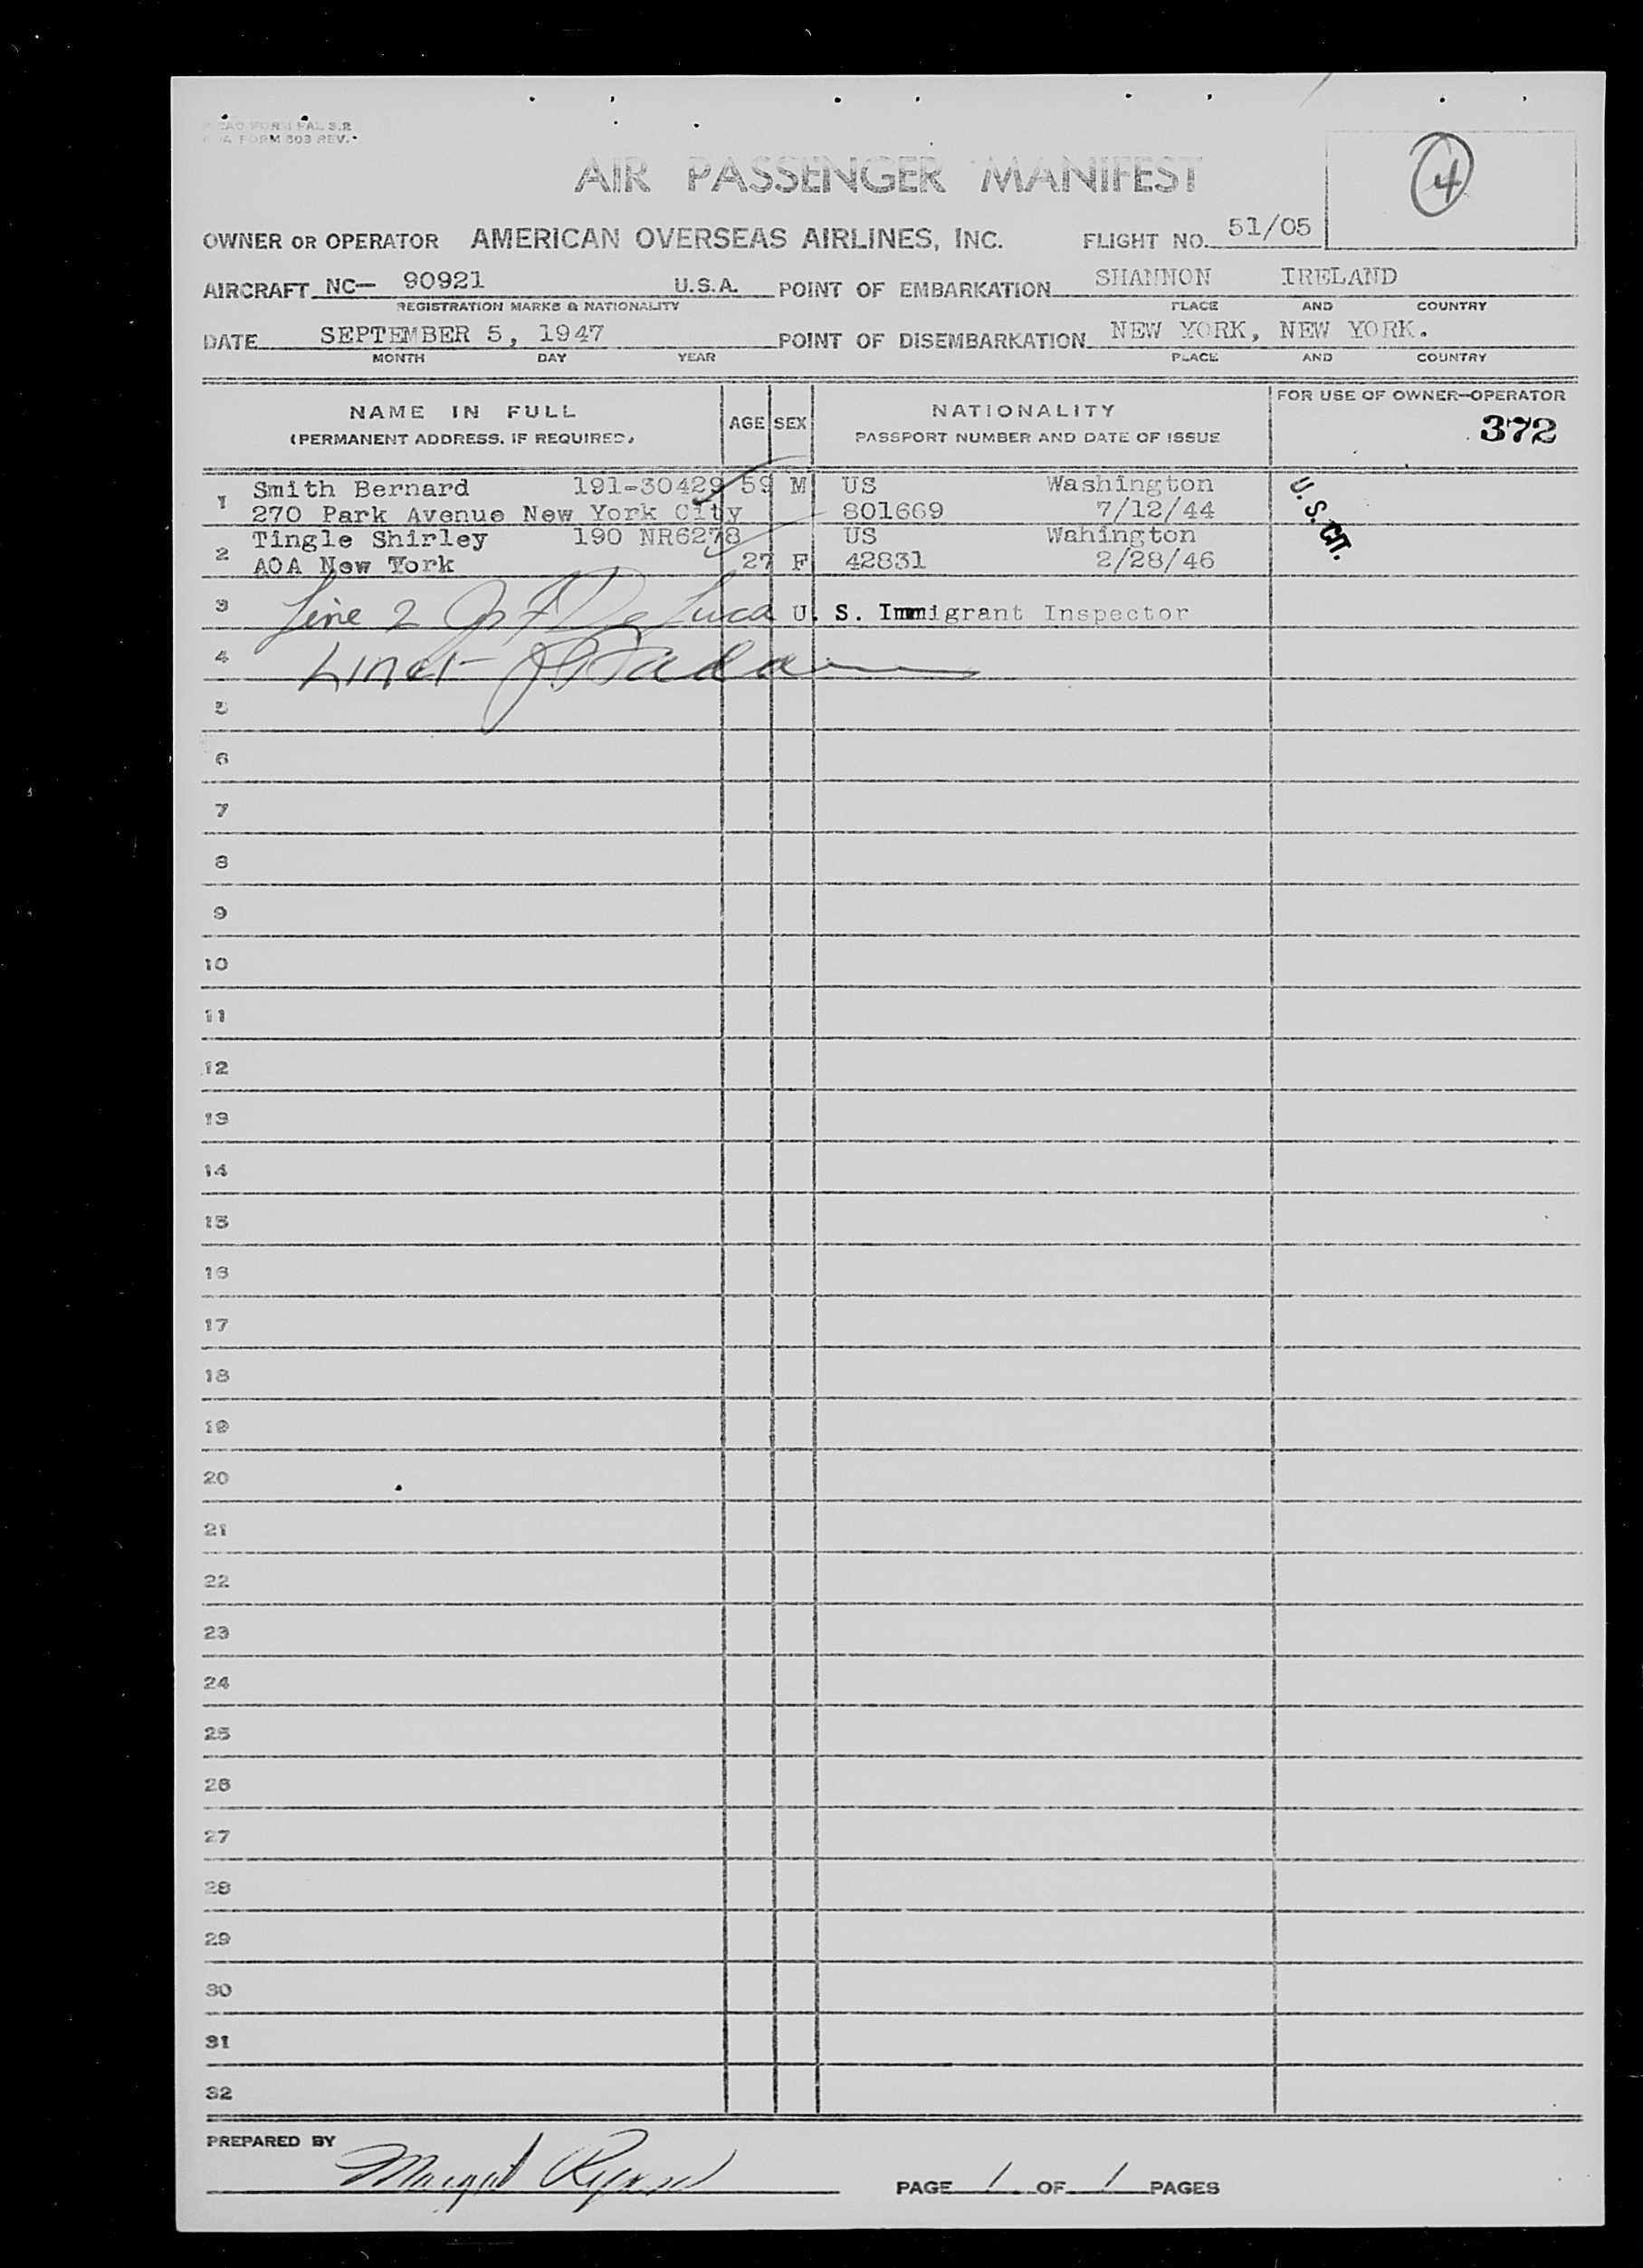 ICAO FORM FAL 3.2
AOA FORM 803 REV.
AIR PASSENGER MANIFEST
4
OWNER OR OPERATOR AMERICAN OVERSEAS AIRLINES, INC. FLIGHT NO. 51/05
AIRCRAFT NC— 90921 U.S.A. POINT OF EMBARKATION SHANNON IRELAND
REGISTRATION MARKS & NATIONALITY PLACE AND COUNTRY
DATE SEPTEMBER 5, 1947 POINT OF DISEMBARKATION NEW YORK, NEW YORK.
MONTH DAY YEAR PLACE AND COUNTRY
NAME IN FULL AGE SEX NATIONALITY FOR USE OF OWNER—OPERATOR
(PERMANENT ADDRESS, IF REQUIRED) PASSPORT NUMBER AND DATE OF ISSUE 372
1 Smith Bernard 191-30429 59 M US Washington U. S. CIT.
270 Park Avenue New York City 801669 7/12/44
2 Tingle Shirley 190 NR6278 US Wahington
AOA New York 27 F 42831 2/28/46
3 Line 2 De Luca U. S. Immigrant Inspector
4 Line 1-
5
6
7
8
9
10
11
12
13
14
15
16
17
18
19
20
21
22
23
24
25
26
27
28
29
30
31
32
PREPARED BY
PAGE 1 OF 1 PAGES